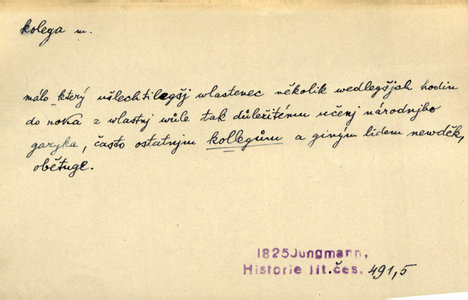 kolega m.
málo který ušlechtilegšj wlastenec několik wedlegšjch hodin
do roka z wlastnj wůle tak důležitému učenj národnjho
gazyka, často ostatnjm kollegům a giným lidem newděk,
obětuge.
1825 Jungmann,
Historie lit.čes. 491,5